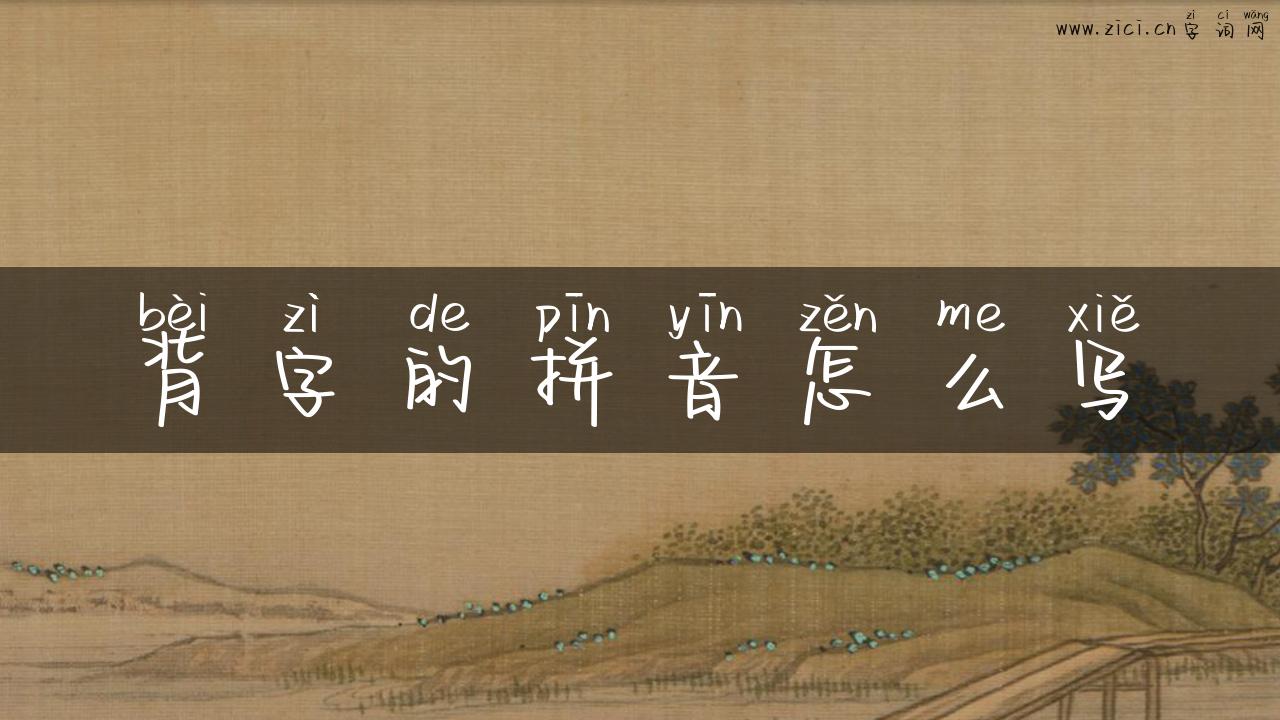 zì cí wǎng
www.zici.cn字词网
bèi zì de pīn yīn zěn me xiě
背字的拼音怎么写